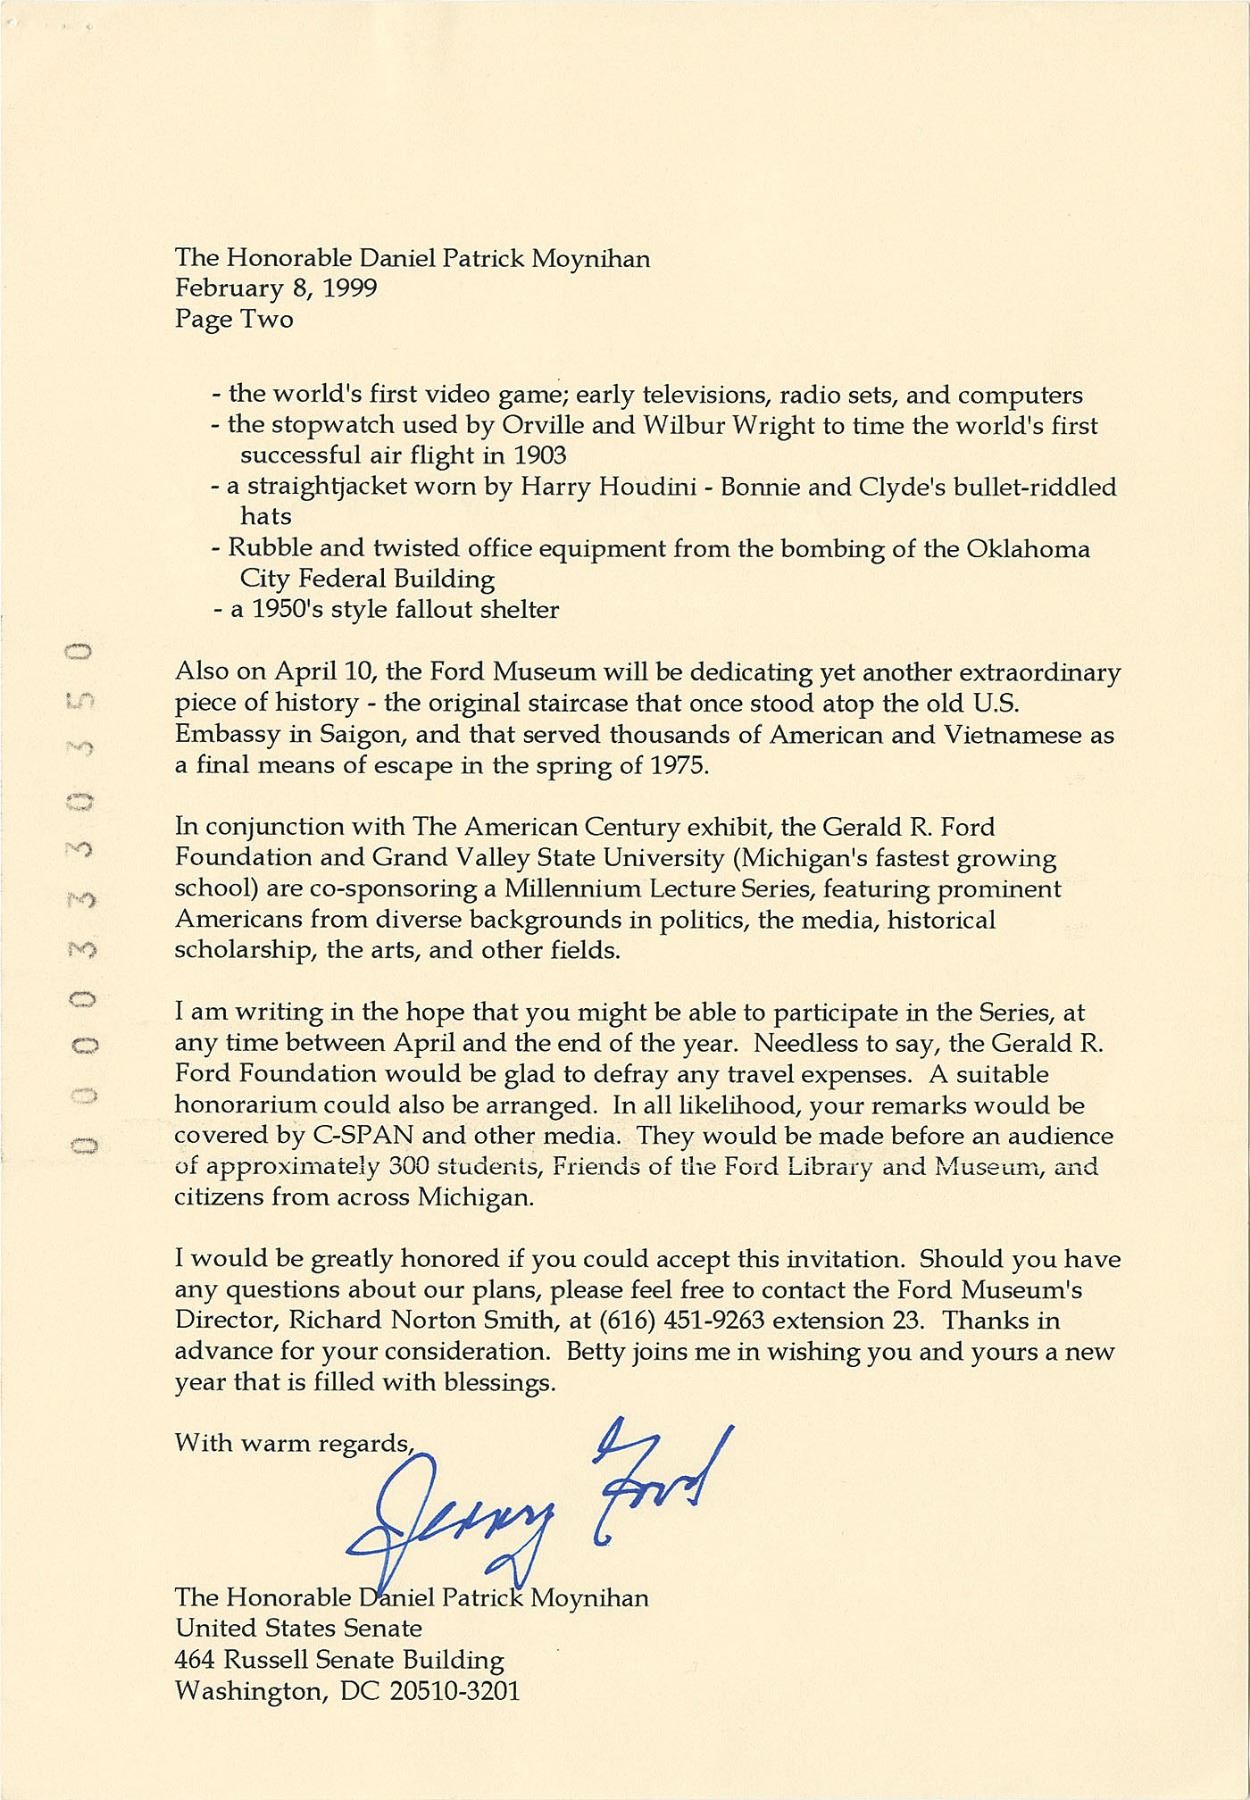 The Honorable Daniel Patrick Moynihan
February 8, 1999
Page Two
- the world's first video game; early televisions, radio sets, and computers
- the stopwatch used by Orville and Wilbur Wright to time the world's first
successful air flight in 1903
- a straightjacket worn by Harry Houdini - Bonnie and Clyde's bullet-riddled
hats
- Rubble and twisted office equipment from the bombing of the Oklahoma
City Federal Building
- a 1950's style fallout shelter
Also on April 10, the Ford Museum will be dedicating yet another extraordinary
piece of history - the original staircase that once stood atop the old U.S.
Embassy in Saigon, and that served thousands of American and Vietnamese as
a final means of escape in the spring of 1975.
In conjunction with The American Century exhibit, the Gerald R. Ford
Foundation and Grand Valley State University (Michigan's fastest growing
school) are co-sponsoring a Millennium Lecture Series, featuring prominent
Americans from diverse backgrounds in politics, the media, historical
scholarship, the arts, and other fields.
I am writing in the hope that you might be able to participate in the Series, at
any time between April and the end of the year.  Needless to say, the Gerald R.
Ford Foundation would be glad to defray any travel expenses.  A suitable
honorarium could also be arranged.  In all likelihood, your remarks would be
covered by C-SPAN and other media.  They would be made before an audience
of approximately 300 students, Friends of the Ford Library and Museum, and
citizens from across Michigan.
I would be greatly honored if you could accept this invitation.  Should you have
any questions about our plans, please feel free to contact the Ford Museum's
Director, Richard Norton Smith, at (616) 451-9263 extension 23.  Thanks in
advance for your consideration.  Betty joins me in wishing you and yours a new
year that is filled with blessings.
With warm regards,
Jerry Ford
The Honorable Daniel Patrick Moynihan
United States Senate
464 Russell Senate Building
Washington, DC 20510-3201
00003330350